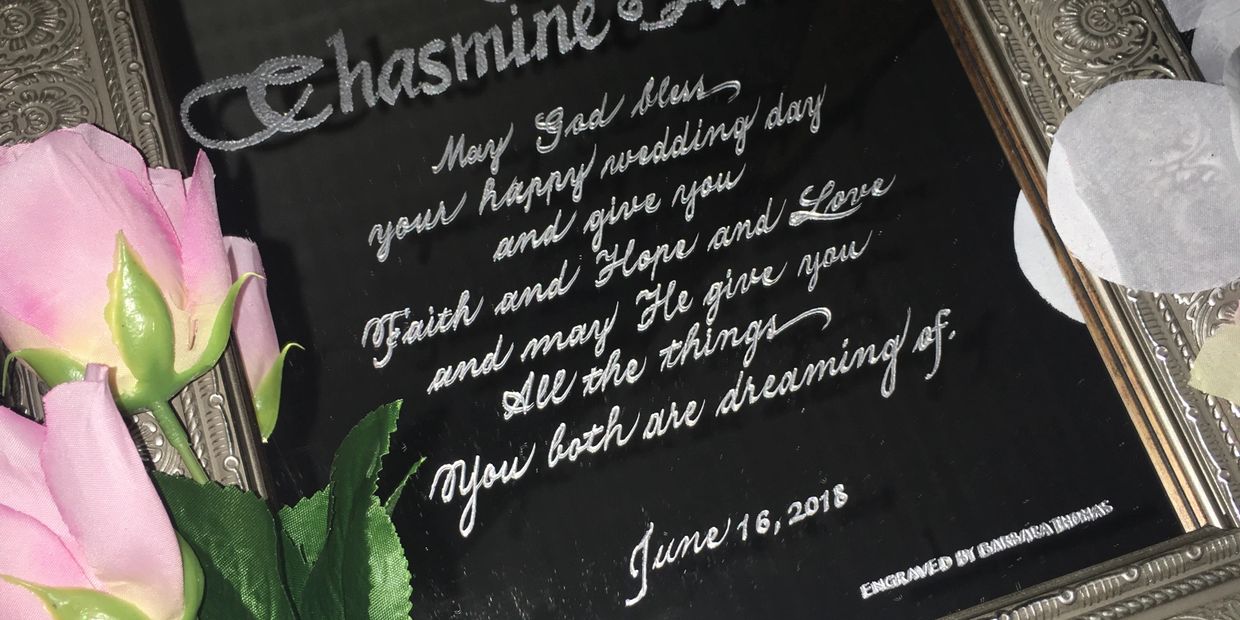 Chasmine
May God bless
your happy wedding day
and give you
Faith and Hope and Love
and may He give you
All the things
You both are dreaming of.
June 16, 2018
ENGRAVED BY BARBARA THOMAS